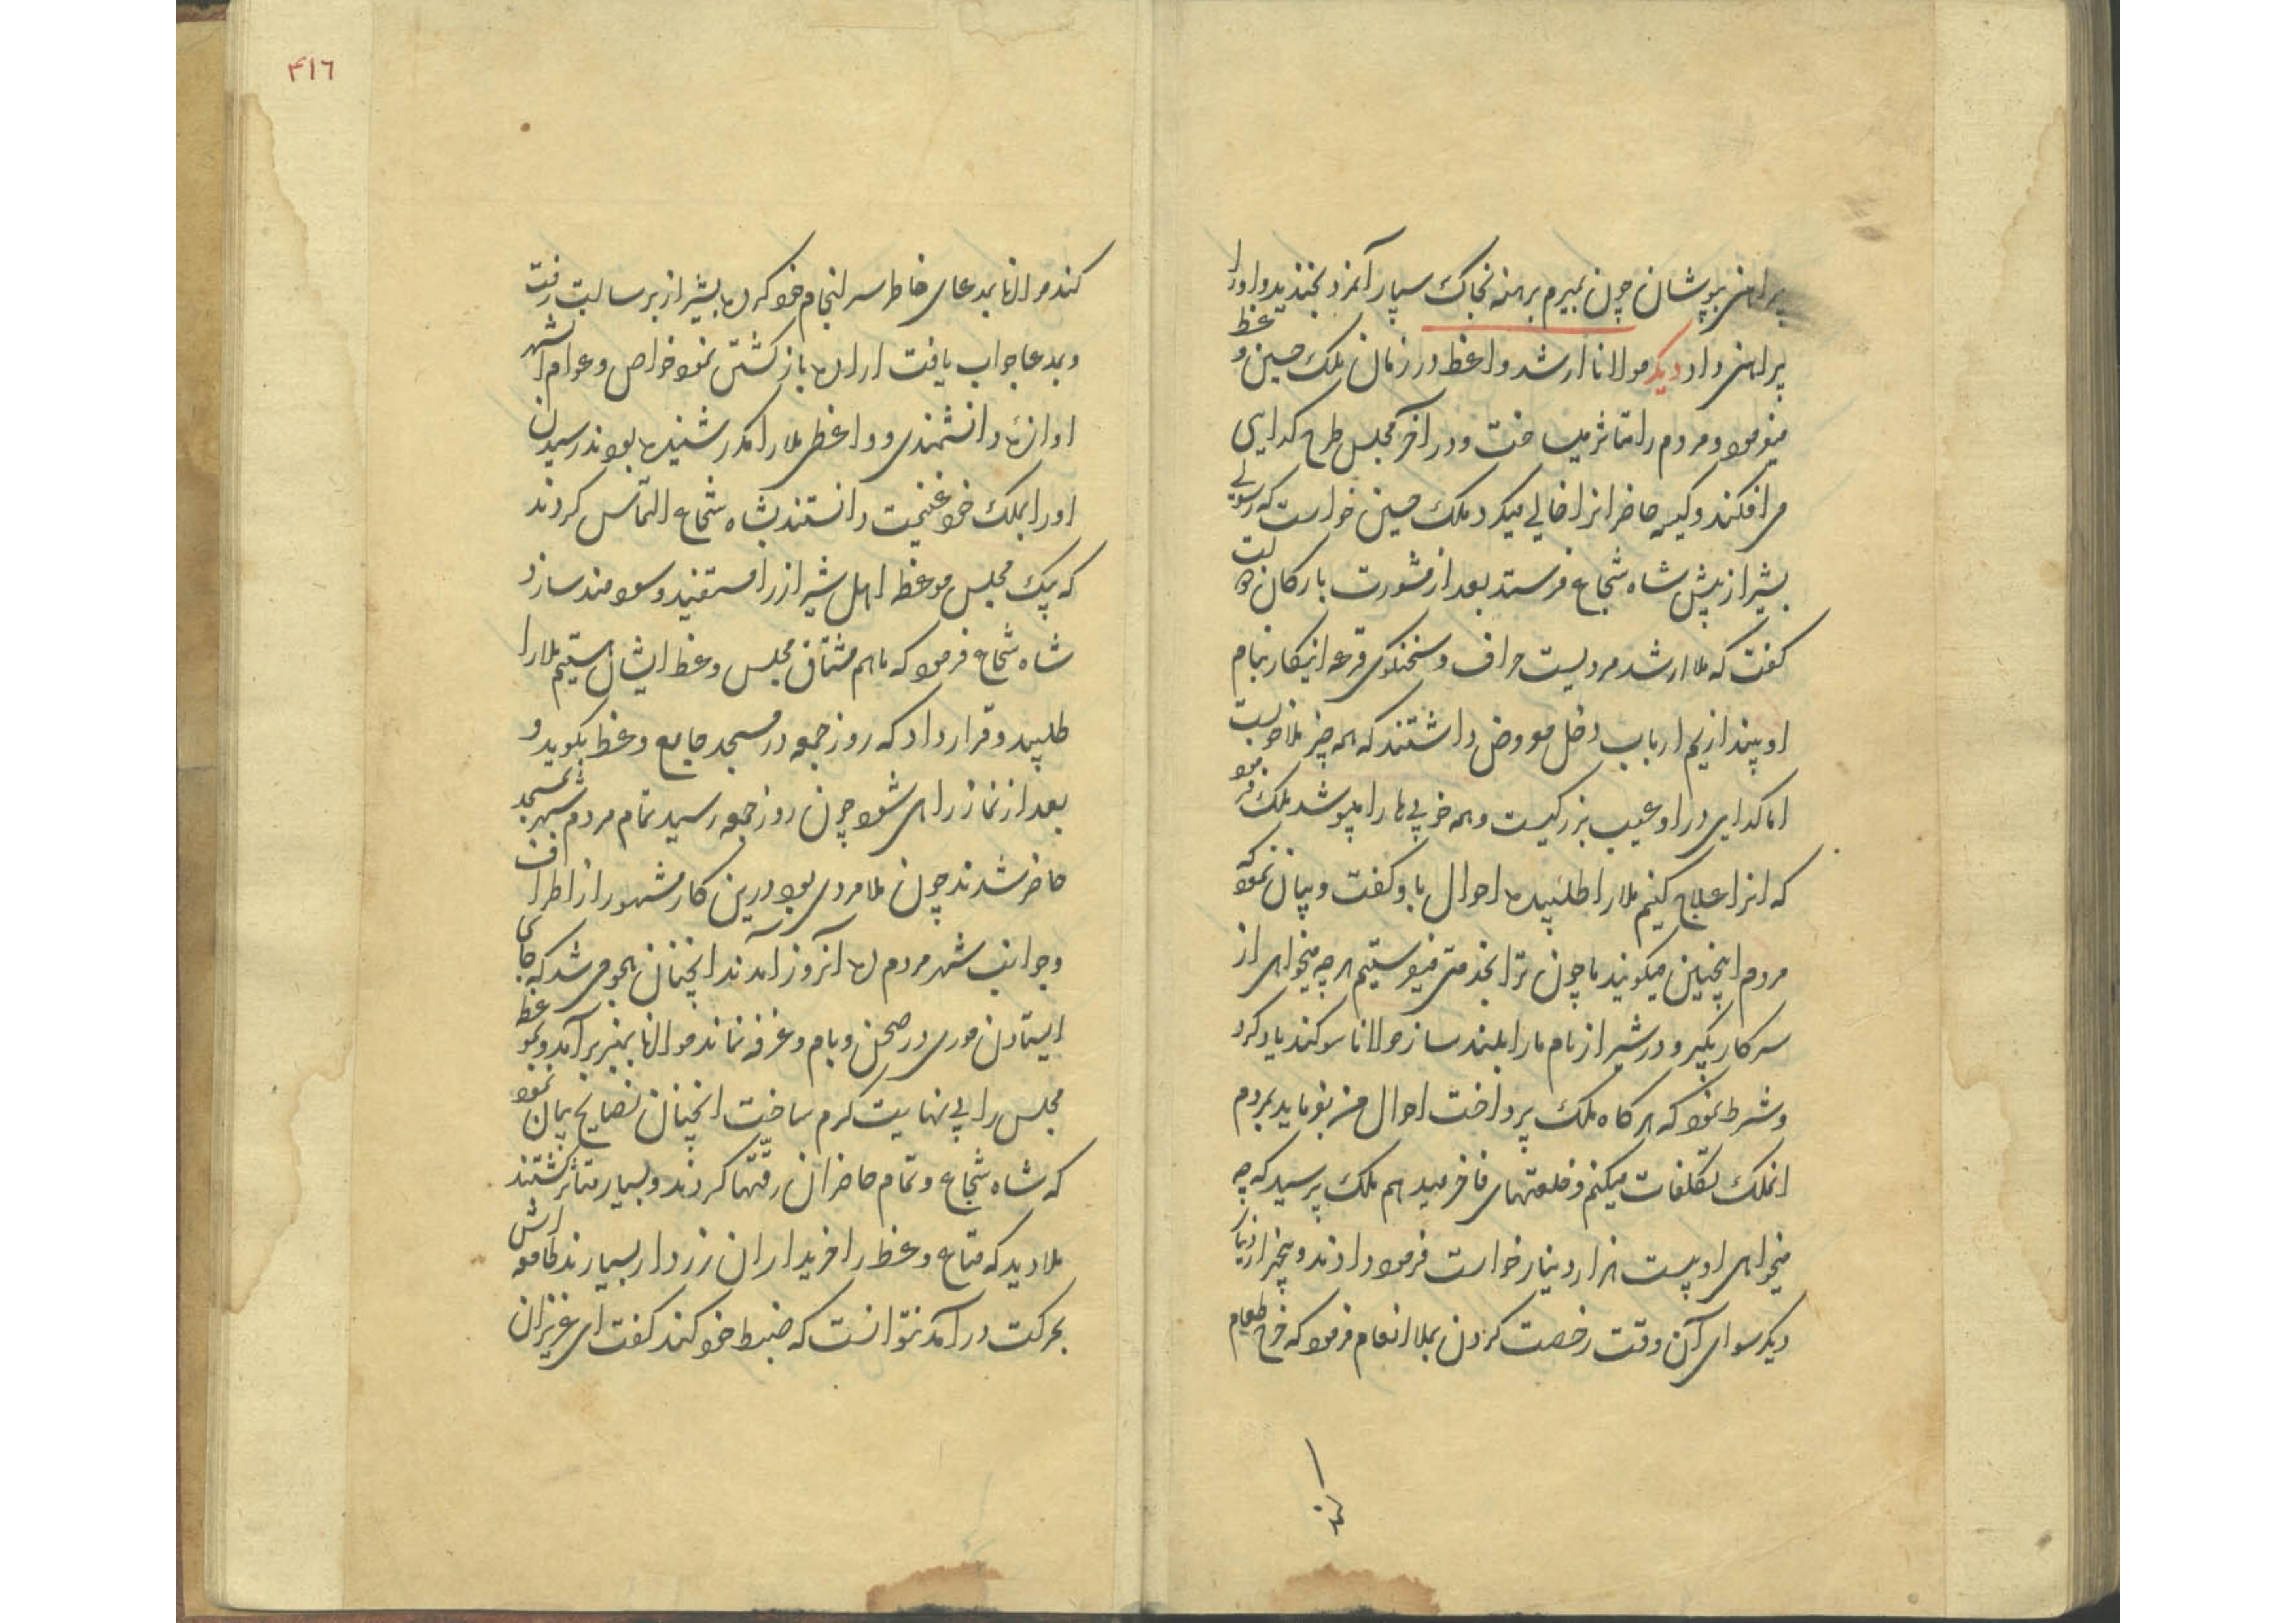 پیراهنی بپوشان چون بمیرم برهنه بخاک سپار آنمرد بخندید و او را
پیراهنی داد دیگر مولانا ارشد واعظ در زمان ملک حسین وعظ
میفرمود و مردم را متاثر میساخت و در آخر مجلس طرح کدایی
می افکند و کیسه حاضرانرا خالی میکرد ملک حسین خواست که رسولی
بشیراز پیش شاه شجاع فرستد بعد از مشورت بارکان دولت
گفت که ملا ارشد مردیست حراف و سخنکوی قرعه اینکار بنام
او بیندازیم ارباب دخل معروض داشتند که همه چیز ملا خوبست
اما کدایی در او عیب بزرکیست و همه خوبی‌ها را میپوشد ملک فرمود
که انرا علاج کنیم ملا را طلبیده احوال باو کفت و بیان نمود که
مردم اینچنین میکویند ما چون ترا بخدمتی میفرستیم هر چه میخواهی از
سرکار بکیر و در شیراز نام ما را بلند ساز مولانا سوکند یاد کرد
و شرط نمود که هرکاه ملک پرداخت احوال من بفرماید بمردم
انملک تکلفات میکنم و خلعتهای فاخر میدهم ملک پرسید که چه
میخواهی او بیست هزار دینار خواست فرمود دادند و پنجهزار دینار
دیکر سوای آن وقت رخصت کردن بملا انعام فرمود که خرج طعام
کند
٤١٦
کند مولانا بمدعای خاطر سرانجام خود کرده بشیراز برسالت رفت
و بمدعا جواب یافت اراده باز کشتن نمود خواص و عوام انشهر
اوازه دانشمندی و واعظی ملا را مکرر شنیده بودند رسیدن
او را بملک خود غنیمت دانستند بشاه شجاع التماس کردند
که بیک مجلس موعظه اهل شیراز را مستفید و سودمند سازد
شاه شجاع فرمود که ما هم مشتاق مجلس وعظ ایشان هستیم ملا را
طلبید و قرار داد که روز جمعه در مسجد جامع وعظ بکوید و
بعد از نماز راهی شود چون روز جمعه رسید تمام مردم شهر بمسجد
حاضر شدند چون ملا مردی بود درین کار مشهور از اطراف
و جوانب شهر مردم ده آنروز آمدند انچنان هجومی شد که جای
ایستادن موری در صحن و بام و غرفه نماند مولانا بمنبر برآمد و وعظ نمود
مجلس را بی‌نهایت کرم ساخت انچنان نصایح بیان نمود
که شاه شجاع و تمام حاضران رقتها کردند و بسیار متاثر کشتند
ملا دید که متاع وعظ را خریداران زردار بسیارند طامعه اش
بحرکت درآمد نتوانست که ضبط خود کند کفت ای عزیزان